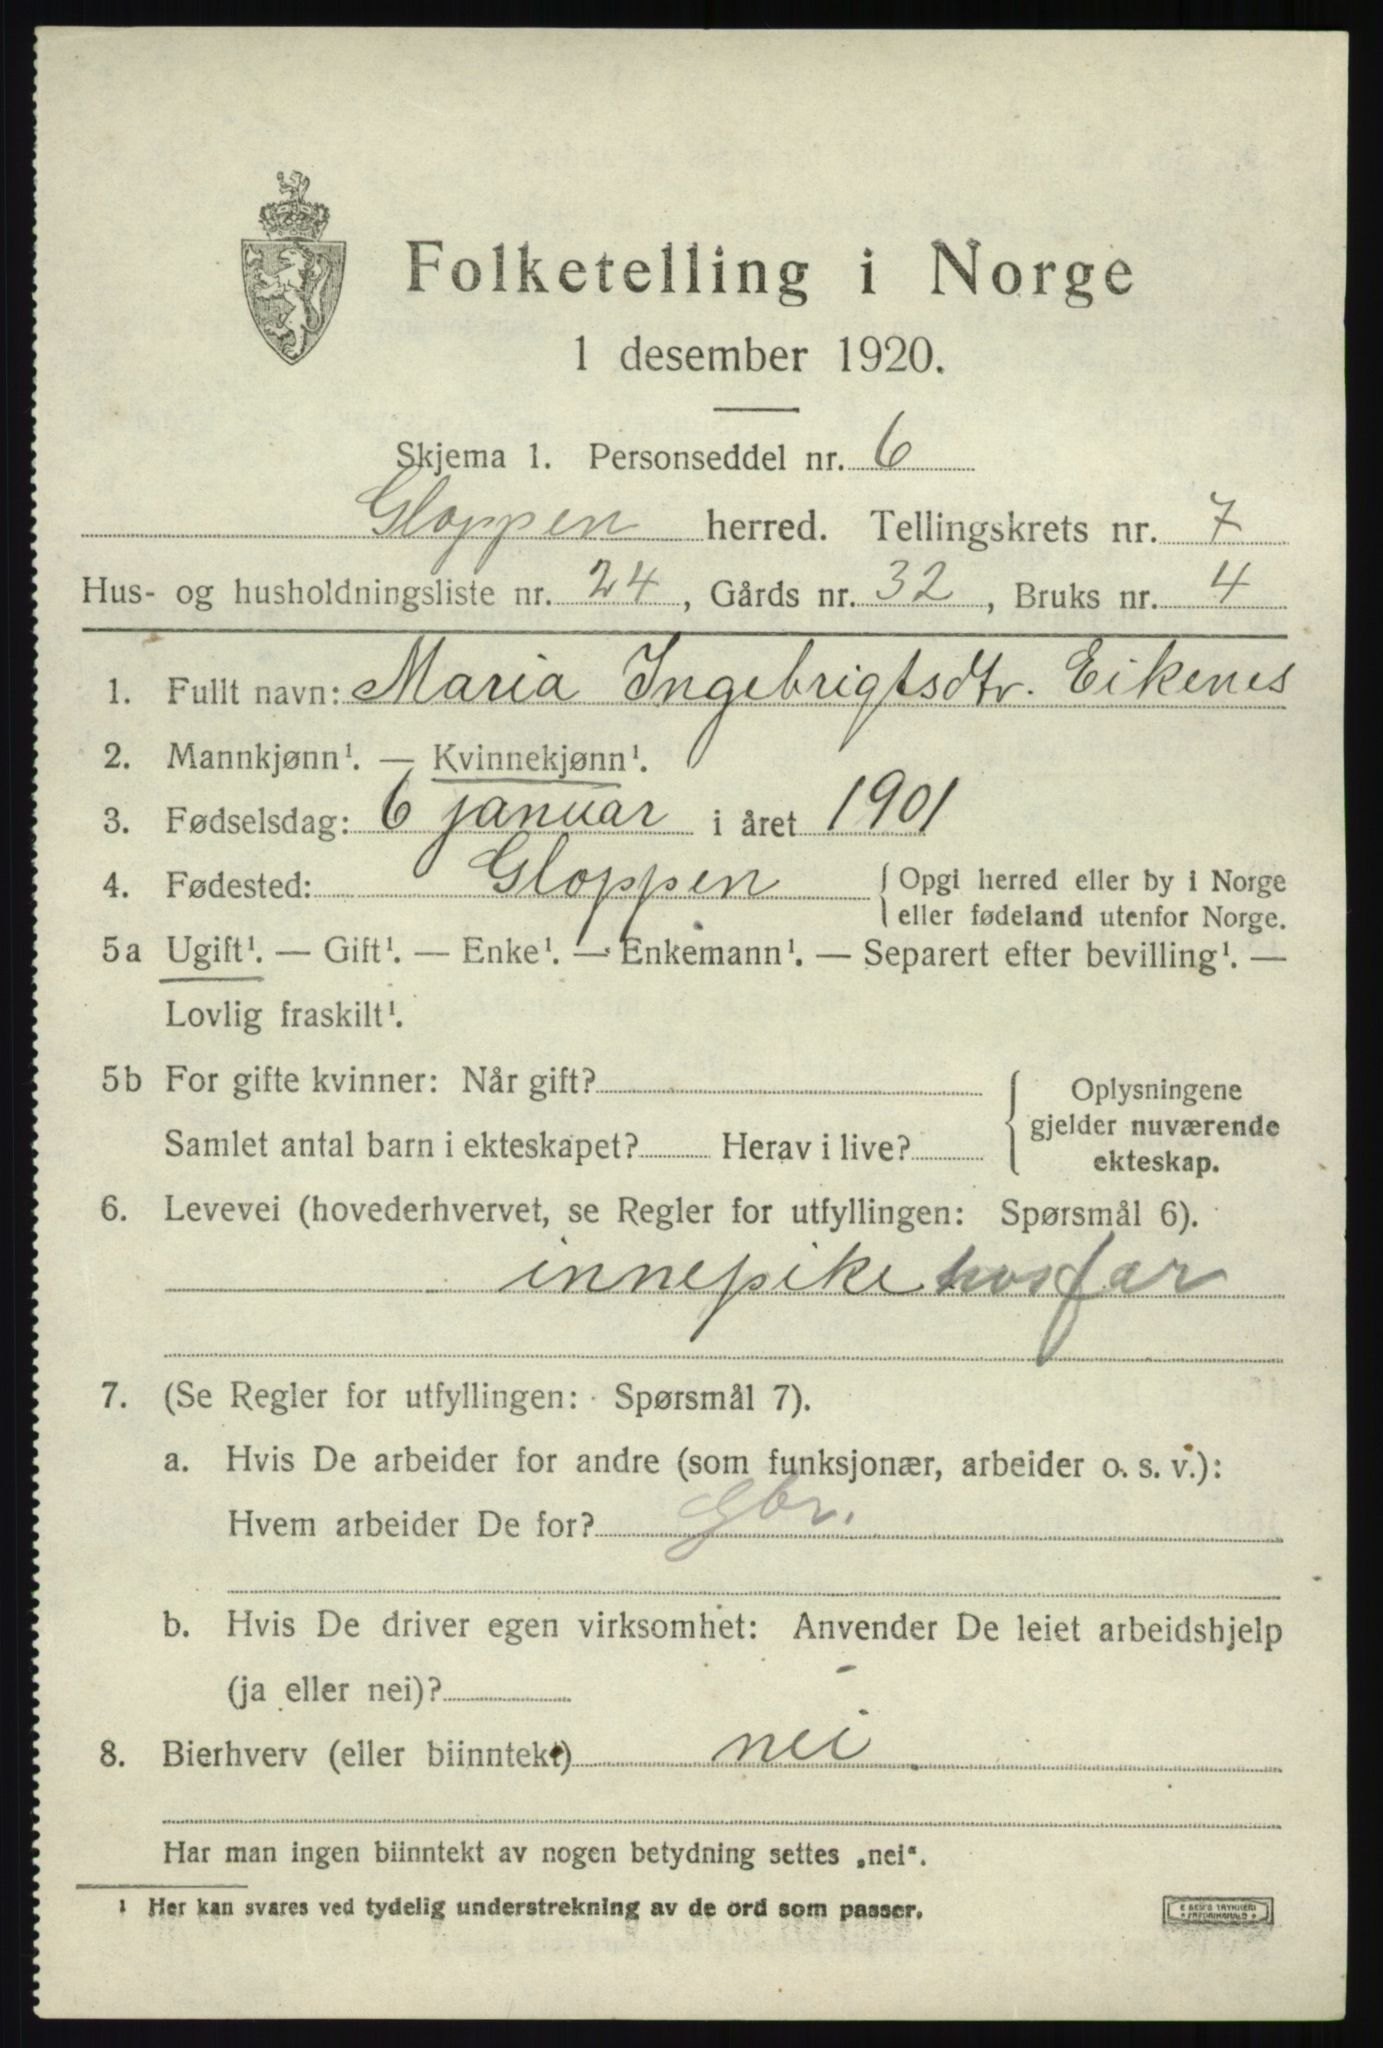 Folketelling i Norge
1 desember 1920.
Skjema 1. Personseddel nr. 6
Gloppen herred. Tellingskrets nr. 7
Hus- og husholdningsliste nr. 24, Gårds nr. 32, Bruks nr. 4
1. Fullt navn: Maria Ingebrigtsdtr. Eikenes
2. Mannkjønn¹. — Kvinnekjønn¹.
3. Fødselsdag: 6 januar i året 1901
4. Fødested: Gloppen { Opgi herred eller by i Norge
eller fødeland utenfor Norge.
5a Ugift¹. — Gift¹. — Enke¹. — Enkemann¹. — Separert efter bevilling¹. —
Lovlig fraskilt¹.
5b For gifte kvinner: Når gift? { Oplysningene
gjelder nuværende
Samlet antal barn i ekteskapet? Herav i live? ekteskap.
6. Levevei (hovederhvervet, se Regler for utfyllingen: Spørsmål 6).
innepike hos far
7. (Se Regler for utfyllingen: Spørsmål 7).
a. Hvis De arbeider for andre (som funksjonær, arbeider o. s. v.):
Hvem arbeider De for? Gbr.
b. Hvis De driver egen virksomhet: Anvender De leiet arbeidshjelp
(ja eller nei)?
8. Bierhverv (eller biinntekt) nei
Har man ingen biinntekt av nogen betydning settes „nei“.
¹ Her kan svares ved tydelig understrekning av de ord som passer.